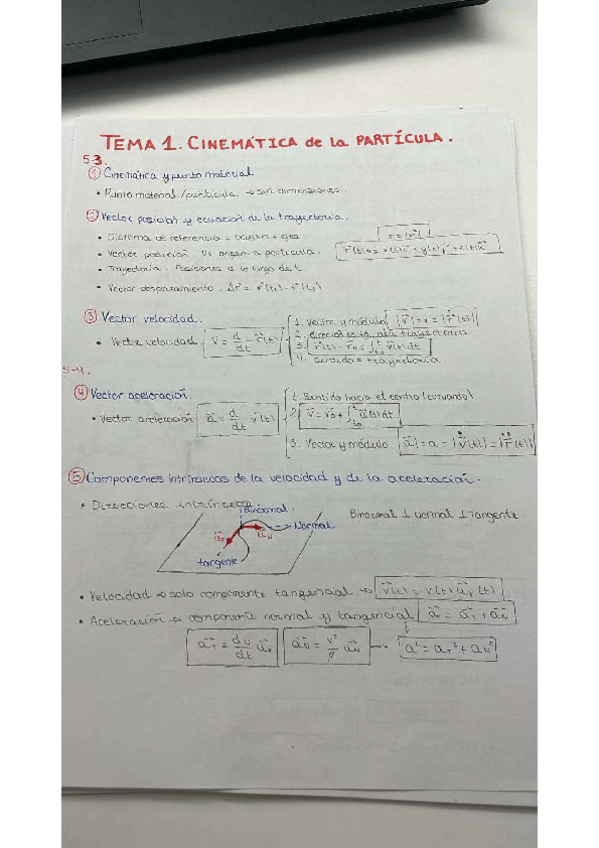 TEMA 1. CINEMÁTICA de la PARTÍCULA.
53.
① Cinemática y punto material
• Punto material /partícula → sin dimensiones.
② Vector posición y ecuación de la trayectoria.
• Sistema de referencia = origen + ejes
• Vector posición. De origen a partícula.
• Trayectoria. Posiciones a lo largo de t.
• Vector desplazamiento.
③ Vector velocidad.
• Vector velocidad v⃗ = d/dt r⃗(t)
1. Vector y módulo |v⃗| = v = |ṙ⃗(t)|
2. dirección es tg a la trayectoria
3.
4. Sentido = trayectoria
5-4.
④ Vector aceleración.
• Vector aceleración a⃗ = d/dt v⃗(t)
1. Sentido hacia el centro (curvando)
2. v⃗ = v⃗₀ + ∫ a⃗(t) dt
3. Vector y módulo |a⃗| = a = |v̇⃗(t)| = |r̈⃗(t)|
⑤ Componentes intrínsecas de la velocidad y de la aceleración.
• Direcciones intrínsecas
Binormal.
Normal
tangente
Binormal ⊥ normal ⊥ tangente
• Velocidad → solo componente tangencial → v⃗(t) = v(t) u⃗ₜ(t)
• Aceleración → componente normal y tangencial a⃗ = a⃗ₜ + a⃗ₙ
a⃗ₜ = dv/dt u⃗ₜ a⃗ₙ = v²/ρ u⃗ₙ a² = aₜ² + aₙ²